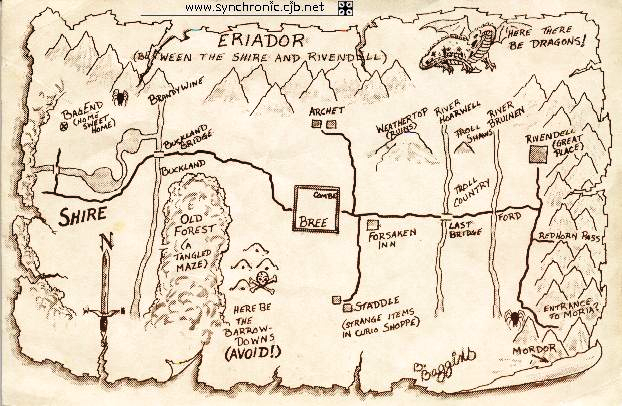 www.synchronic.cjb.net
ERIADOR
(BETWEEN THE SHIRE AND RIVENDELL)
HERE THERE
BE DRAGONS!
BAGEND
(HOME
SWEET
HOME)
BRANDYWINE
ARCHET
WEATHERTOP
(RUINS)
RIVER
HOARWELL
TROLL
SHAWS
RIVER
BRUINEN
RIVENDELL
(GREAT
PLACE)
BUCKLAND
BRIDGE
BUCKLAND
TROLL
COUNTRY
SHIRE
OLD
FOREST
(A
TANGLED
MAZE)
COMBE
BREE
FORSAKEN
INN
LAST
BRIDGE
FORD
REDHORN PASS
N
W
E
HERE BE
THE
BARROW-
DOWNS
(AVOID!)
STADDLE
(STRANGE ITEMS
IN CURIO SHOPPE)
ENTRANCE
TO MORIA?
MORDOR
B. Baggins